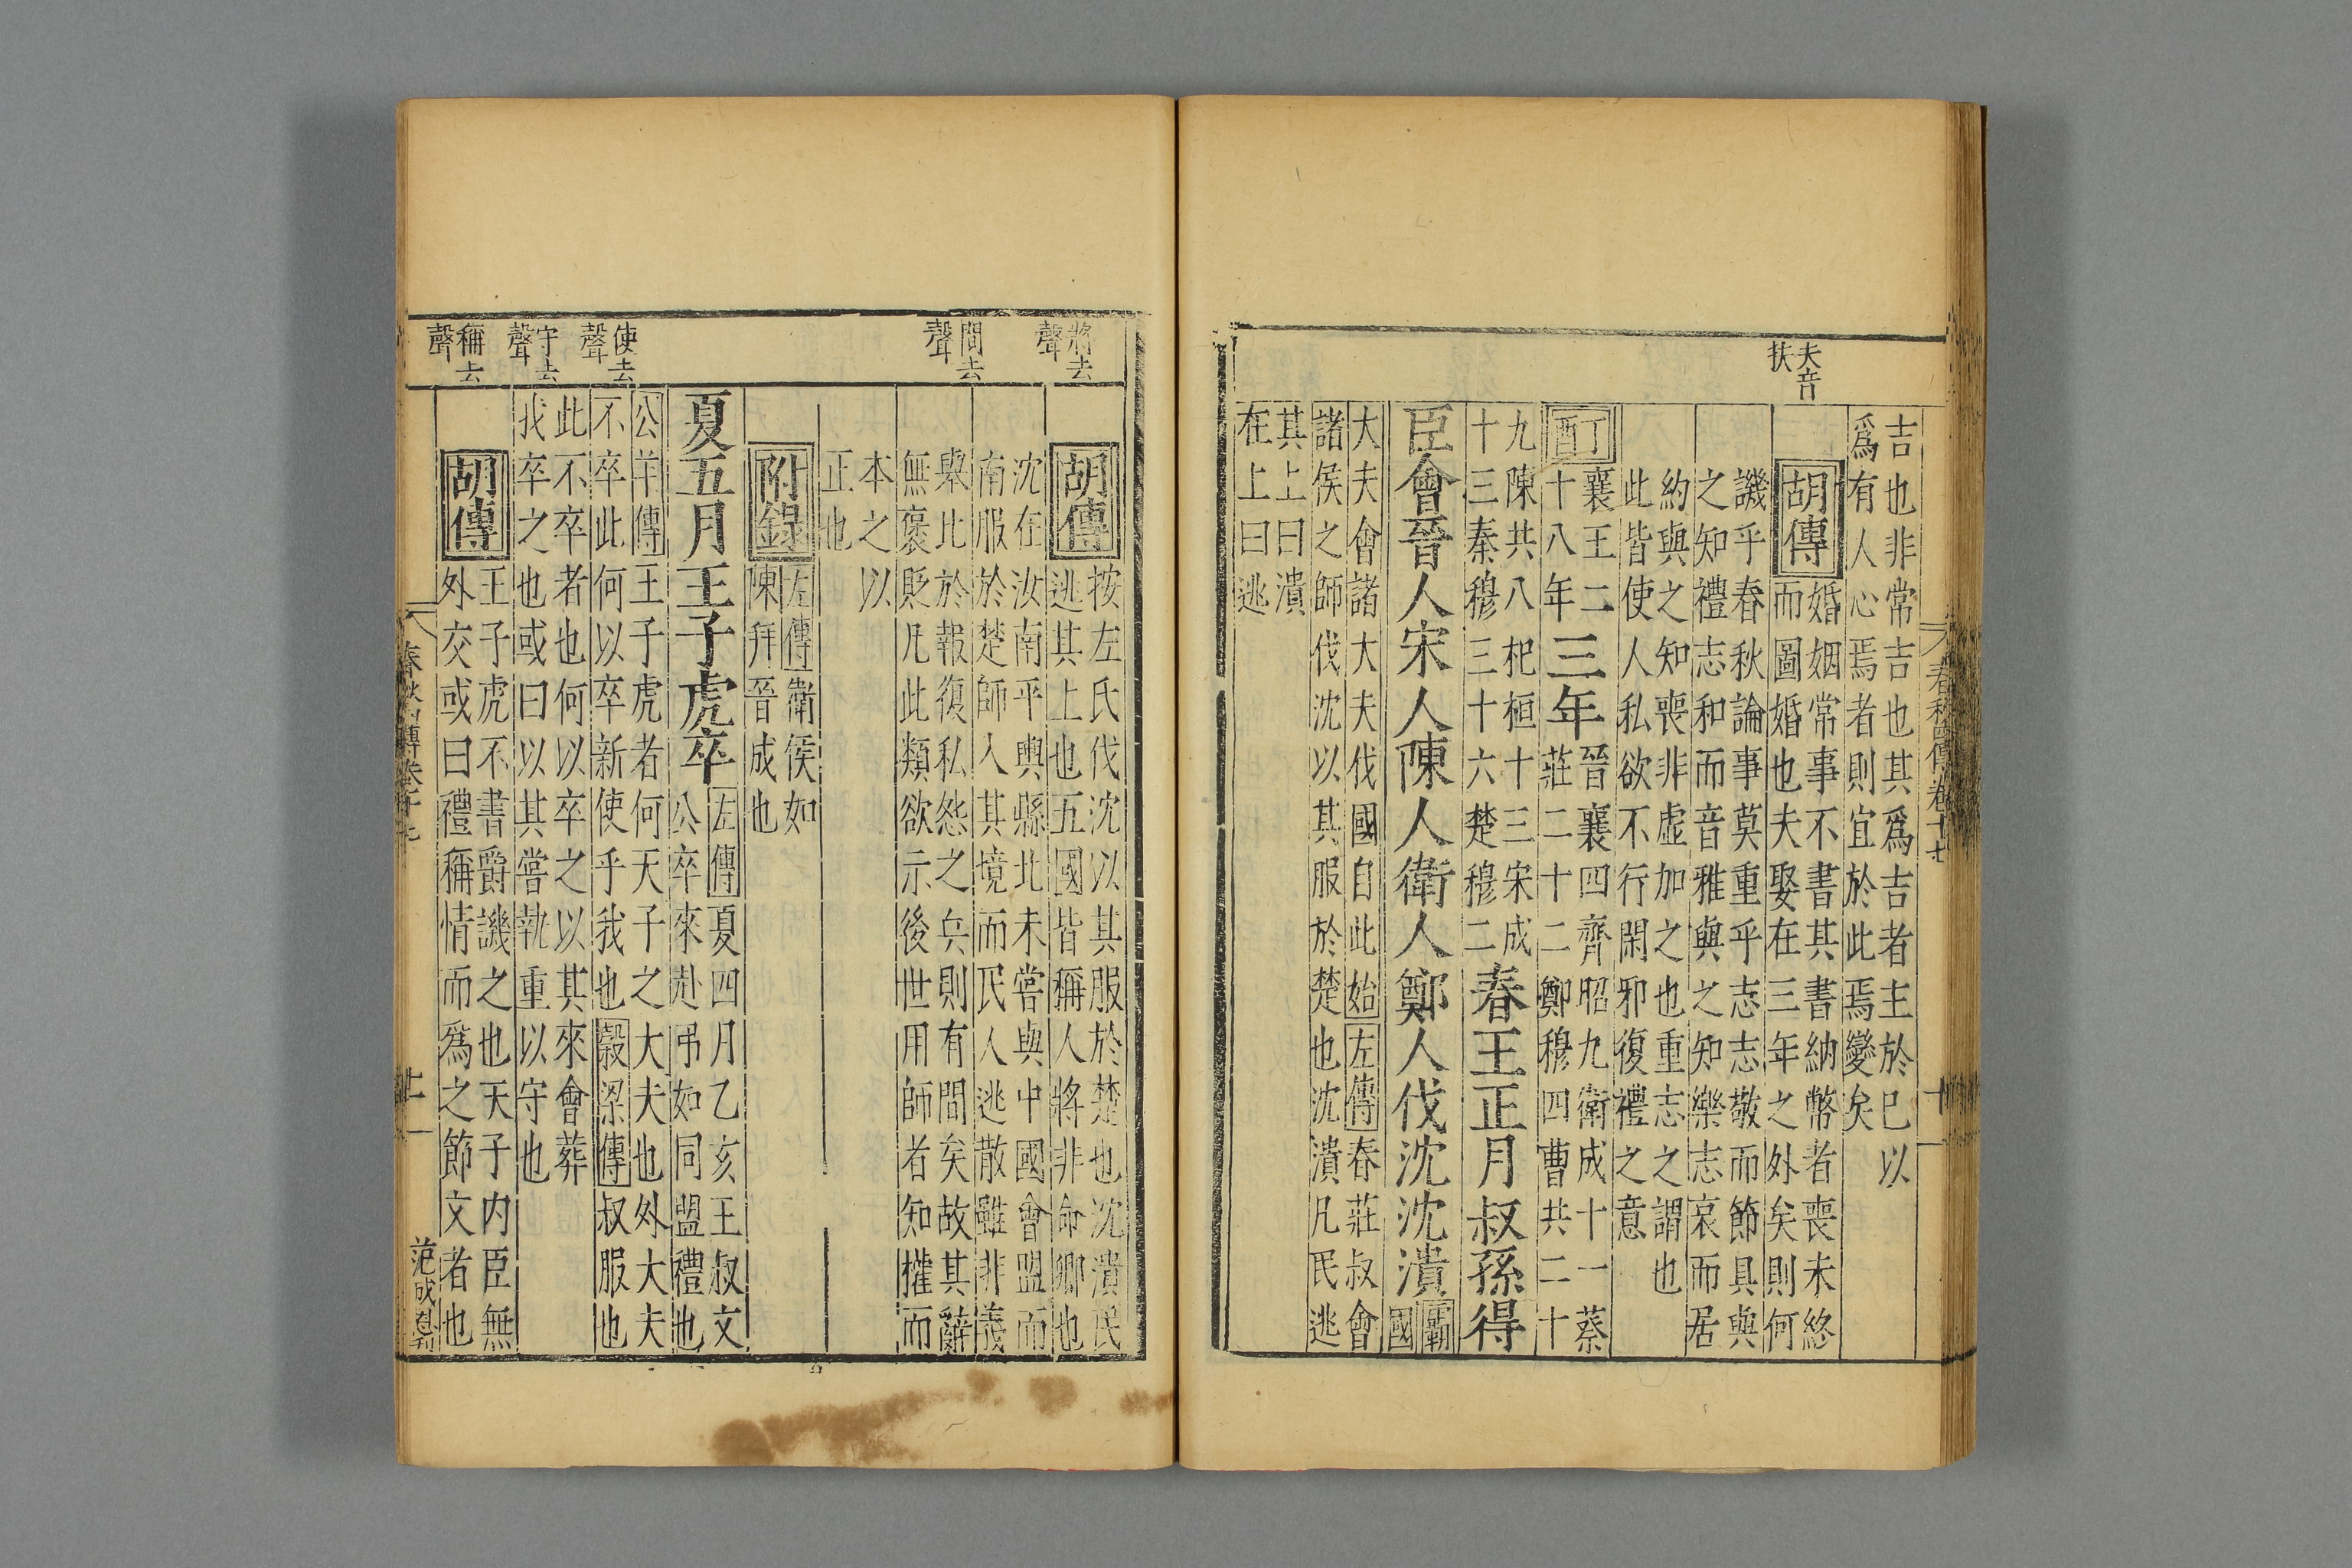 夫音
扶
吉也非常吉也其爲吉者主於已以
爲有人心焉者則宜於此焉變矣
胡傳
婚姻常事不書其書納幣者喪未終
而圖婚也夫娶在三年之外矣則何
譏乎春秋論事莫重乎志志敬而節具與
之知禮志和而音雅與之知樂志哀而居
約與之知喪非虛加之也重志之謂也
此皆使人私欲不行閑邪復禮之意
丁酉
襄王二
十八年
三年
晉襄四齊昭九衛成十一蔡
莊二十二鄭穆四曹共二十
九陳共八杞桓十三宋成
十三秦穆三十六楚穆二
春王正月叔孫得
臣會晉人宋人陳人衛人鄭人伐沈沈潰
霸
國
大夫會諸大夫伐國自此始左傳春莊叔會
諸侯之師伐沈以其服於楚也沈潰凡民逃
其上曰潰
在上曰逃
春秋四傳卷十七
十
將去
聲
間去
聲
使去
聲
守去
聲
稱去
聲
胡傳
按左氏伐沈以其服於楚也沈潰民
逃其上也五國皆稱人將非命卿也
沈在汝南平輿縣北未嘗與中國會盟而
南服於楚師入其境而民人逃散雖非義
舉比於報復私怨之兵則有間矣故其辭
無褒貶凡此類欲示後世用師者知權而
本之以
正也
附錄
左傳衛侯如
陳拜晉成也
夏五月王子虎卒
左傳夏四月乙亥王叔文
公卒來赴弔如同盟禮也
公羊傳王子虎者何天子之大夫也外大夫
不卒此何以卒新使乎我也穀梁傳叔服也
此不卒者也何以卒之以其來會葬
我卒之也或曰以其嘗執重以守也
胡傳
王子虎不書爵譏之也天子内臣無
外交或曰禮稱情而爲之節文者也
春秋四傳卷十七
十一
范成